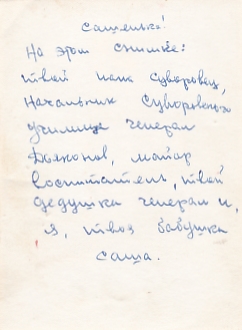 Сашенька!
На этом снимке:
твой папа суворовец,
Начальник Суворовского
училища генерал
майор,
воспитатель, твой
дедушка генерал и,
я, твоя бабушка
Саша.